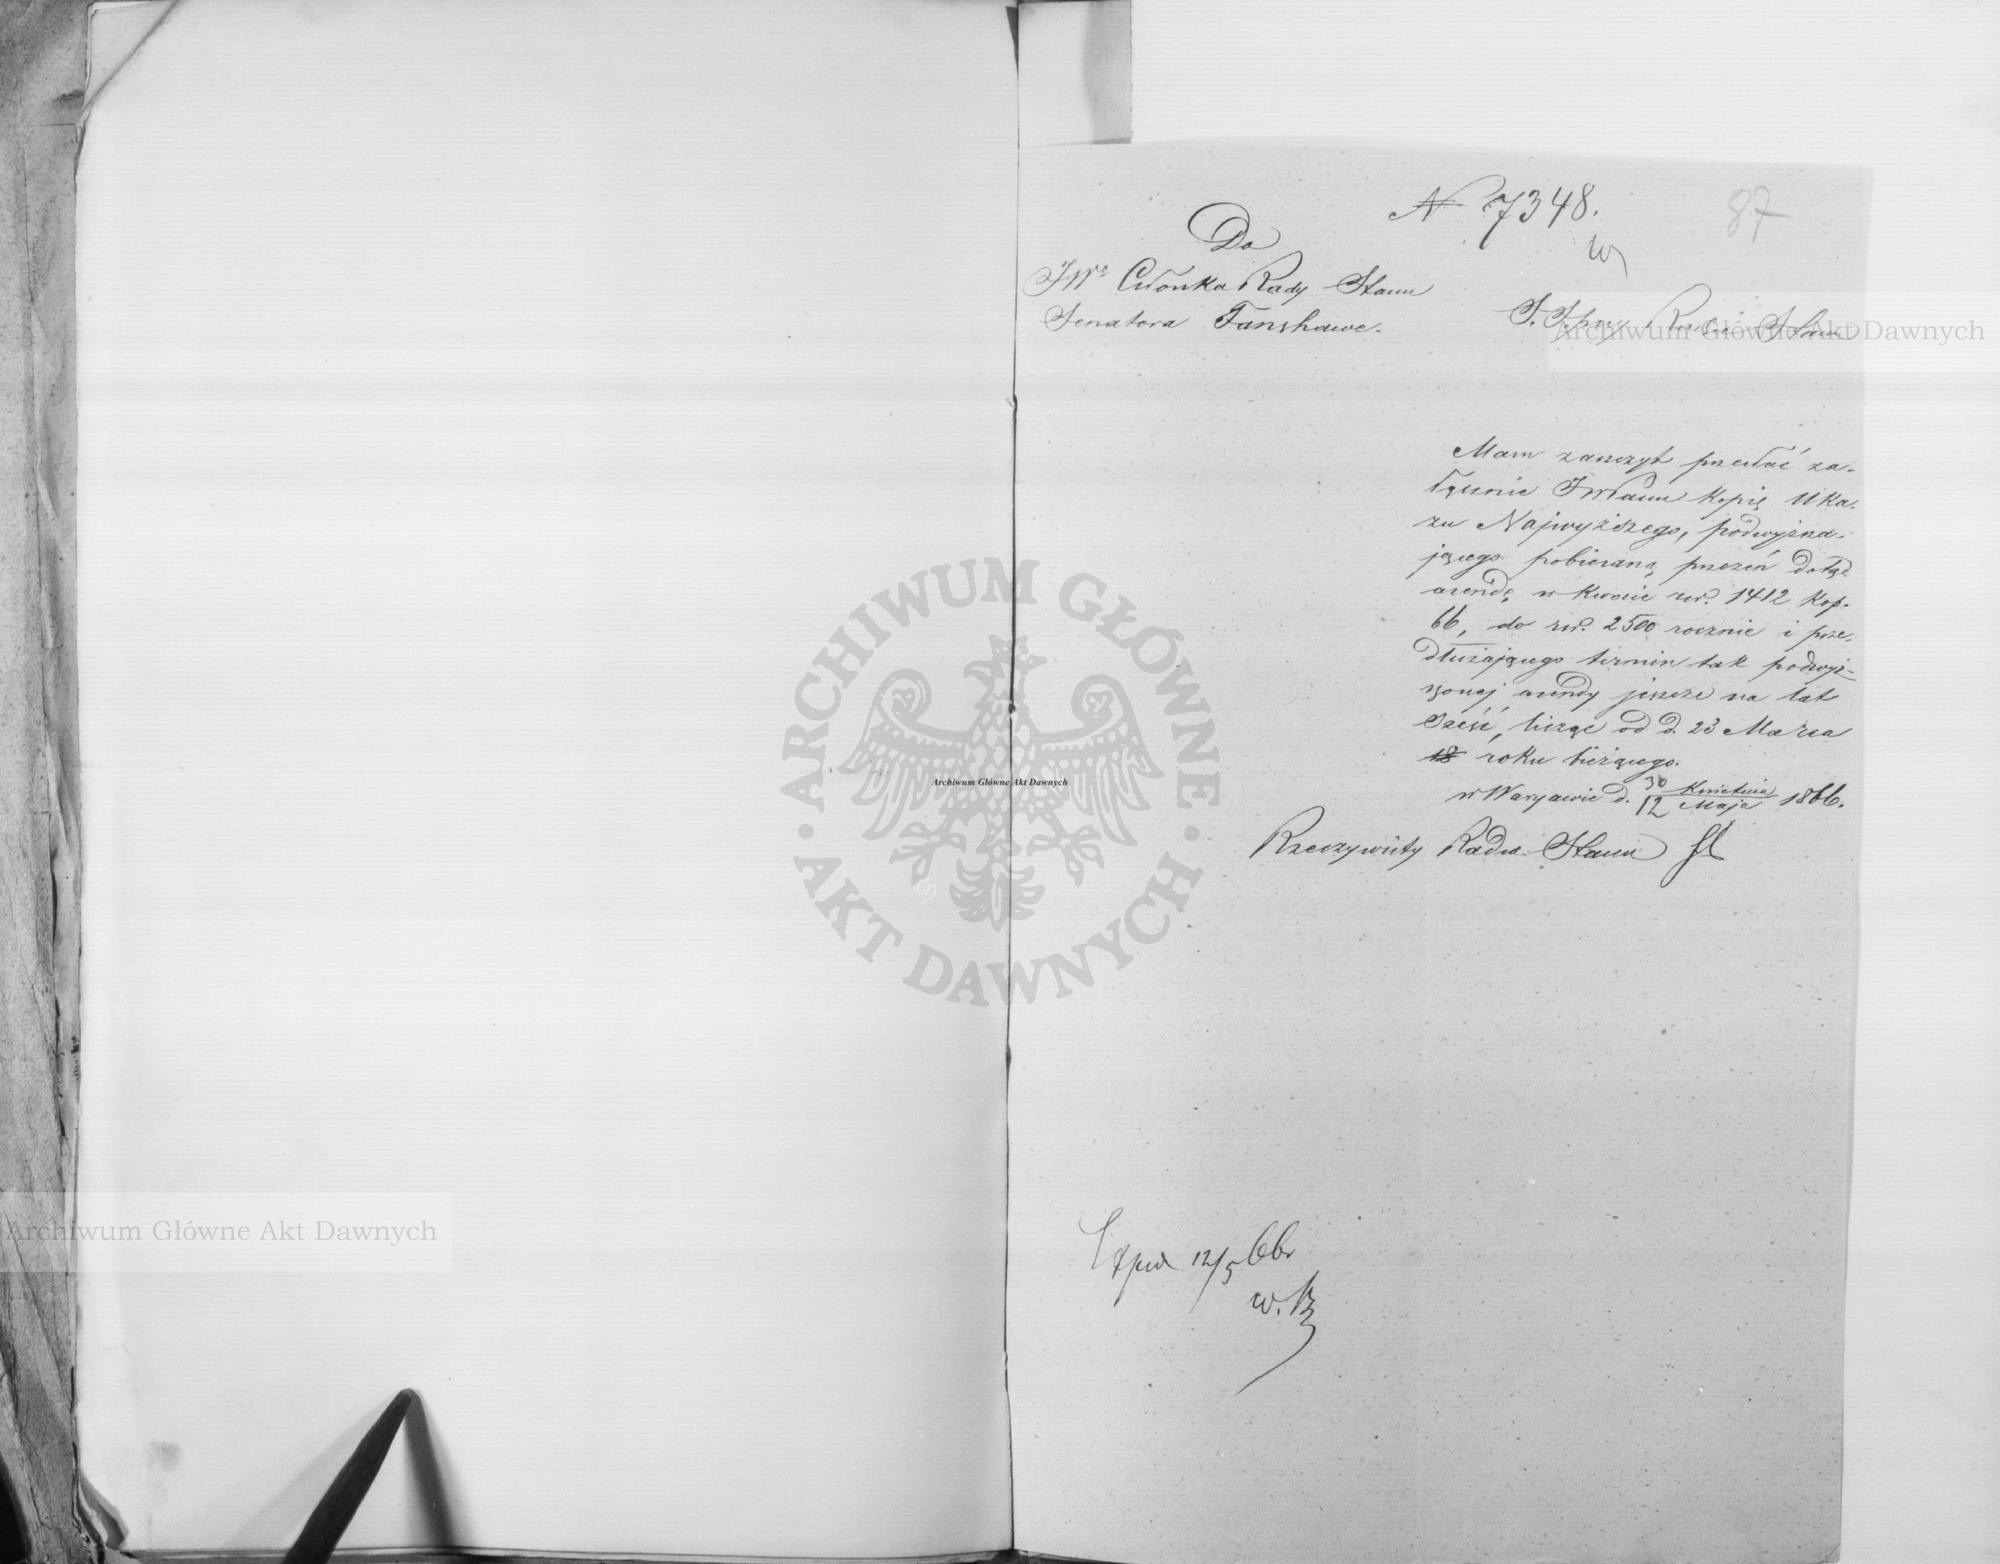 N 7348.
87
Do
JWo Członka Rady Stanu
Senatora Fanshawe.
Radzie Stanu
Mam zaszczyt przesłać za-
łącznie JWPanu kopię Uka-
zu Najwyższego, podwyższa-
jącego pobieraną przezeń dotąd
arendę w kwocie rsr. 1412 kop.
66, do rsr. 2500 rocznie i prze-
dłużającego termin tak podwyż-
szonej arendy jeszcze na lat
sześć, licząc od d. 23 Marca
18 roku bieżącego.
w Warszawie d. 30 Kwietnia / 12 Maja 1866.
Rzeczywisty Radca Stanu
12/5 66
w.
Archiwum Główne Akt Dawnych
Archiwum Główne Akt Dawnych
Archiwum Główne Akt Dawnych
ARCHIWUM GŁÓWNE
· AKT DAWNYCH ·